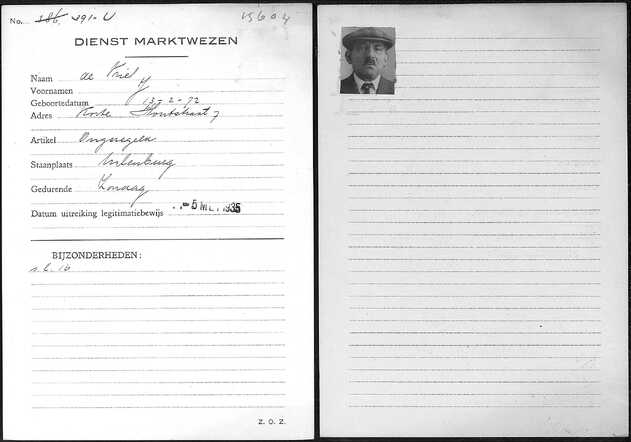 No. 386. 291-U 15604
DIENST MARKTWEZEN
Naam de Vriel
Voornamen J
Geboortedatum 13-2-72
Adres Korte Houtstraat 7
Artikel Ongeregeld
Staanplaats Uilenburg
Gedurende Zondag
Datum uitreiking legitimatiebewijs -5 MEI 1935
BIJZONDERHEDEN:
Z. O. Z.